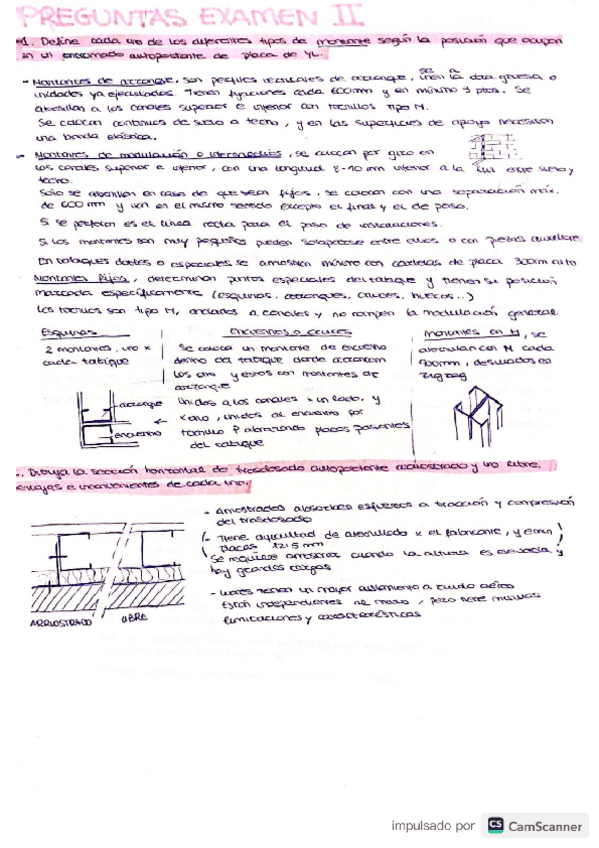 PREGUNTAS EXAMEN II
1. Define cada uno de los diferentes tipos de montante según la posición que ocupan
en un entramado autoportante de placa de YL.
- Montantes de arranque, son perfiles verticales de arranque, se unen a la obra gruesa o
unidades ya ejecutadas. Tienen fijaciones cada 600mm y en mínimo 3 ptos. Se
atornillan a los canales superior e inferior con tornillos tipo M.
Se colocan continuos de suelo a techo, y en las superficies de apoyo necesitan
una banda elástica.
- Montantes de modulación o intermedios, se colocan por giro en
los canales superior e inferior, con una longitud 8-10 mm inferior a la luz entre suelo y
techo.
Solo se atornillan en caso de que sean fijos, se colocan con una separación máx.
de 600 mm y van en el mismo sentido excepto el final y el de paso.
Si se perforan es el línea recta para el paso de instalaciones.
Si los montantes son muy pequeños pueden solaparse entre ellos o con piezas auxiliares
En tabiques dobles o especiales se arriostran mínimo con cartelas de placa 300mm alto
Montantes fijos, determinan puntos especiales del tabique y tienen su posición
marcada específicamente (esquinas, arranques, cruces, huecos...)
Los tornillos son tipo M, anclados a canales y no rompen la modulación general
Esquinas
2 montantes, uno x
cada tabique
arranque
encuentro
Encuentros o cruces
Se coloca un montante de encuentro
dentro del tabique donde arrancan
los otros y estos con montantes de
arranque
Unidos a los canales x un lado, y
x otro, unidos al encuentro por
tornillo P abrazando placas pasantes
del tabique
Montantes en H, se
atornillan con M cada
900mm, desviados en
zig zag
. Dibuja la sección horizontal de trasdosado autoportante arriostrado y uno libre.
Ventajas e inconvenientes de cada uno.
ARRIOSTRADO
LIBRE
- Arriostrados absorben esfuerzos a tracción y compresión
del trasdosado
- Tiene dificultad de atornillado x el fabricante, y en
placas 12'5 mm
Se requiere arriostrar cuando la altura es elevada y
hay grandes cargas
- Libres tienen un mayor aislamiento a ruido aéreo
Están independientes al muro, pero tiene mismas
limitaciones y características
impulsado por CS CamScanner